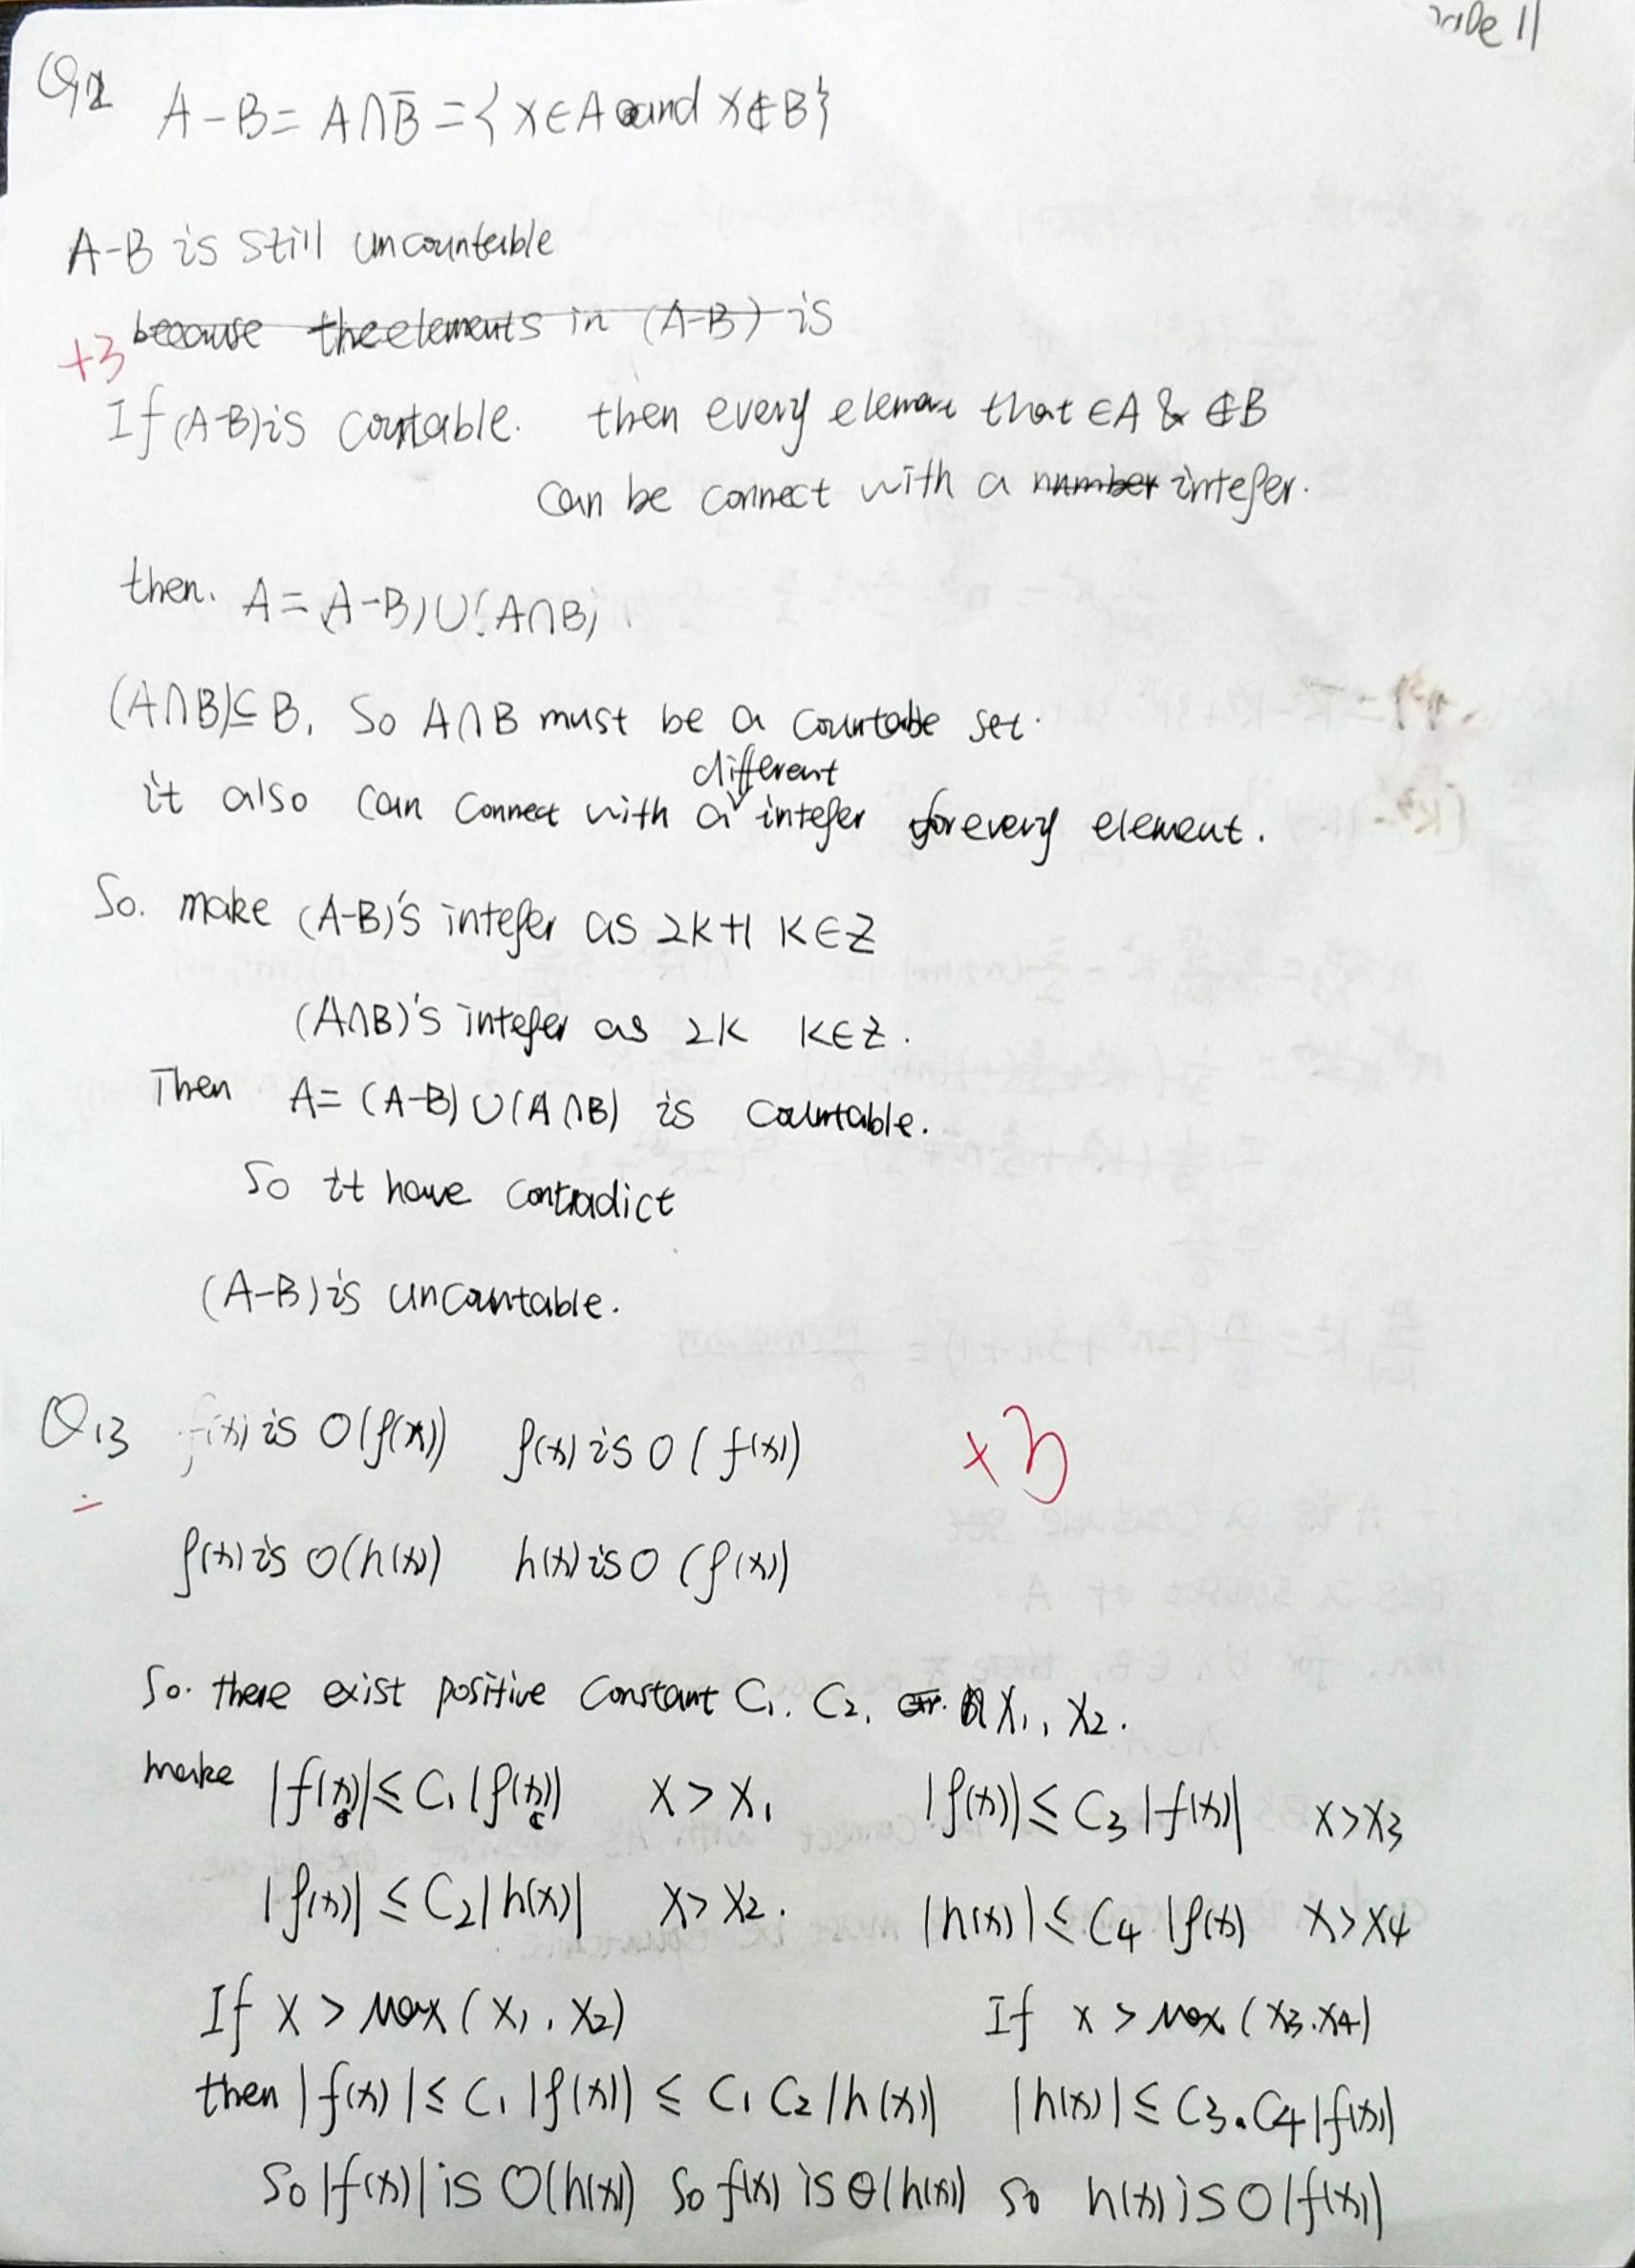 11
Q12 A-B = A∩B̅ = {x∈A and x∉B}
A-B is still uncountable
because the elements in (A-B) is
+3
If (A-B) is countable. then every element that ∈A & ∉B
can be connect with a number integer.
then. A = (A-B)∪(A∩B)
(A∩B)⊆B, So A∩B must be a countable set.
different
it also can connect with a integer for every element.
So. make (A-B)'s integer as 2k+1 k∈Z
(A∩B)'s integer as 2k k∈Z.
Then A= (A-B)∪(A∩B) is countable.
So it have contradict
(A-B) is uncountable.
Q13 f(x) is O(g(x)) g(x) is O(f(x)) +3
g(x) is O(h(x)) h(x) is O(g(x))
So. there exist positive constant C1. C2, X1, X2.
make |f(x)| ≤ C1 |g(x)| X > X1 |g(x)| ≤ C3 |f(x)| X>X3
|g(x)| ≤ C2 |h(x)| X> X2. |h(x)| ≤ C4 |g(x) X>X4
If X > Max (X1, X2) If x > Max (X3.X4)
then |f(x)| ≤ C1 |g(x)| ≤ C1 C2 |h(x)| |h(x)| ≤ C3.C4 |f(x)|
So |f(x)| is O(h(x)) So f(x) is Θ(h(x)) So h(x) is O|f(x)|